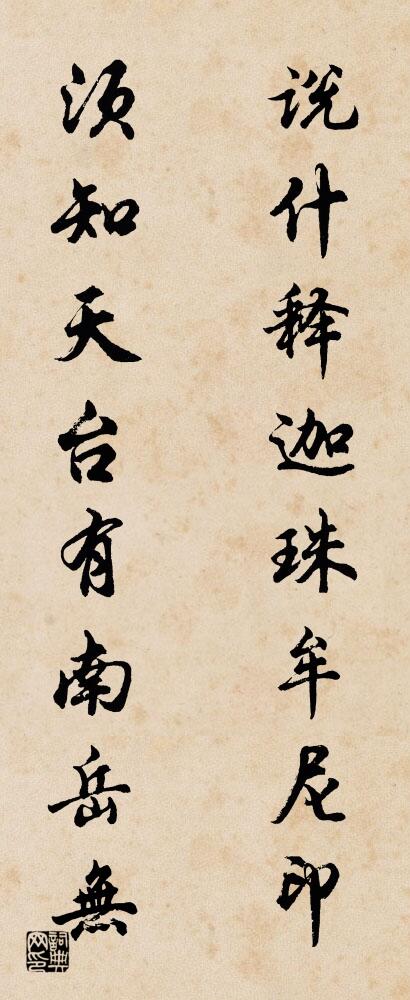 说什释迦珠牟尼印
须知天台有南岳無
詞典网印